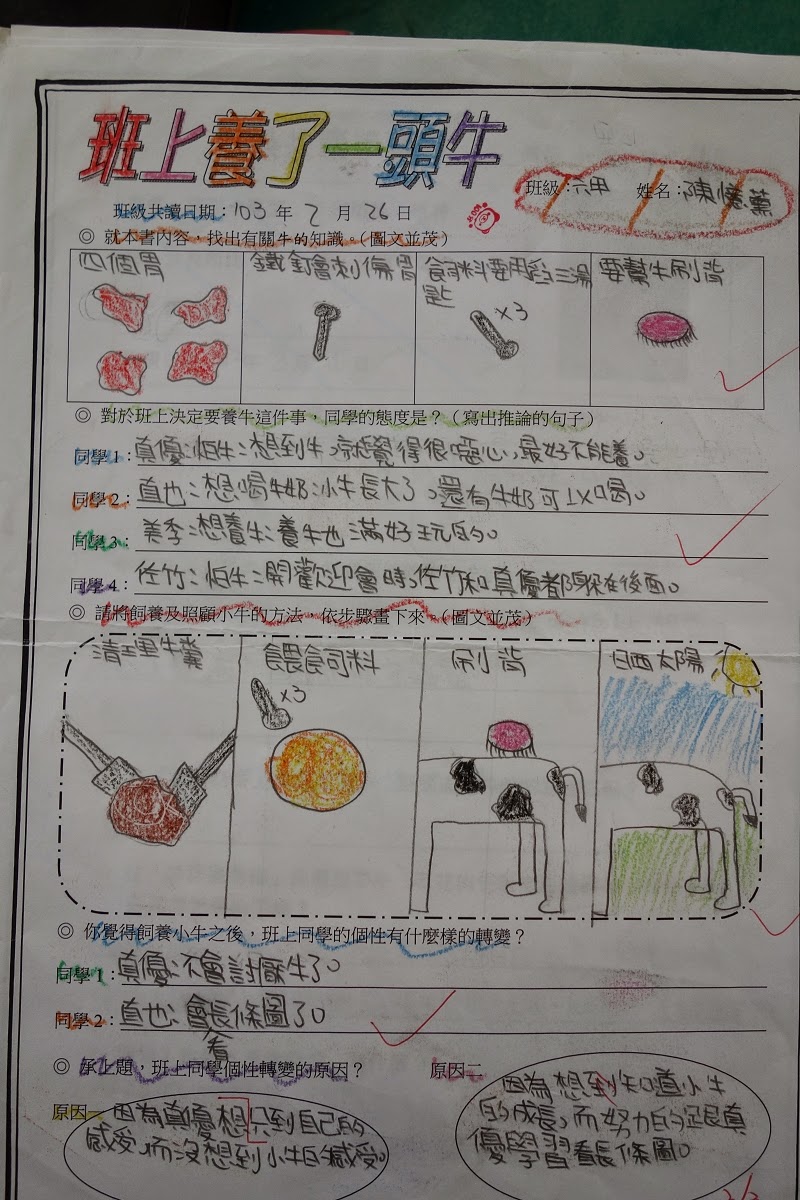 班上養了一頭牛
班級：六甲 姓名：陳憶蘋
班級共讀日期：103 年 2 月 26 日
◎ 就本書內容，找出有關牛的知識。（圖文並茂）
四個胃 鐵釘會刺傷胃 飼料要用舀三湯匙 要幫牛刷背
x3
◎ 對於班上決定要養牛這件事，同學的態度是？（寫出推論的句子）
同學 1：真優：怕牛：想到牛，就覺得很噁心，最好不能養。
同學 2：直也：想喝牛奶：小牛長大了，還有牛奶可以喝。
同學 3：美季：想養牛：養牛也滿好玩的。
同學 4：佐竹：怕牛：開歡迎會時，佐竹和真優都躲在後面。
◎ 請將飼養及照顧小牛的方法，依步驟畫下來。（圖文並茂）
清理牛糞 餵食飼料 刷背 曬太陽
x3
◎ 你覺得飼養小牛之後，班上同學的個性有什麼樣的轉變？
同學 1：真優：不會討厭牛了。
同學 2：直也：會看長條圖了。
◎ 承上題，班上同學個性轉變的原因？
原因一 因為真優只想到自己的
感受，而沒想到小牛的感受。
原因二
因為想知道小牛
的成長，而努力的跟真
優學習看長條圖。